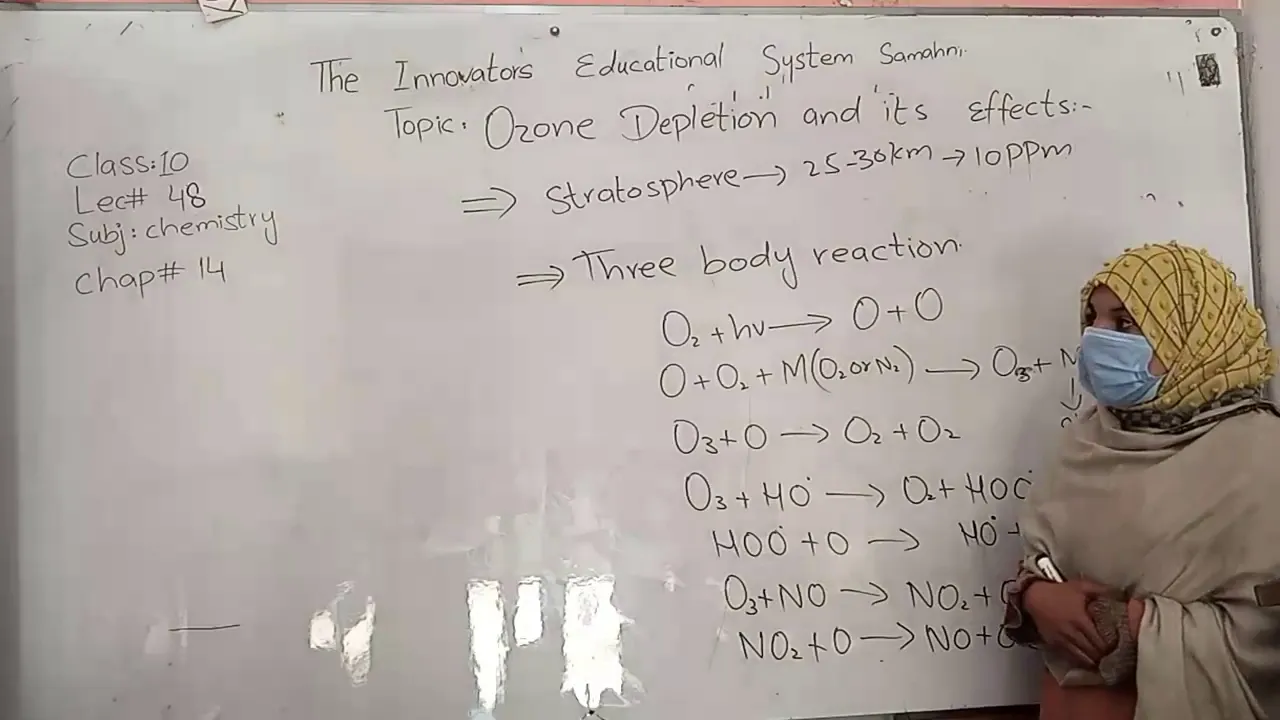 The Innovator's Educational System Samahni.
Topic: Ozone Depletion and its effects:-
Class: 10
Lec# 48
Subj: chemistry
Chap# 14
⇒ Stratosphere → 25-30km → 10PPm
⇒ Three body reaction.
O₂ + hν → O + O
O + O₂ + M(O₂ or N₂) → O₃ +
O₃ + O → O₂ + O₂
O₃ + HO˙ → O₂ + HOO˙
HOO˙ + O → HO˙ +
O₃ + NO → NO₂ +
NO₂ + O → NO +